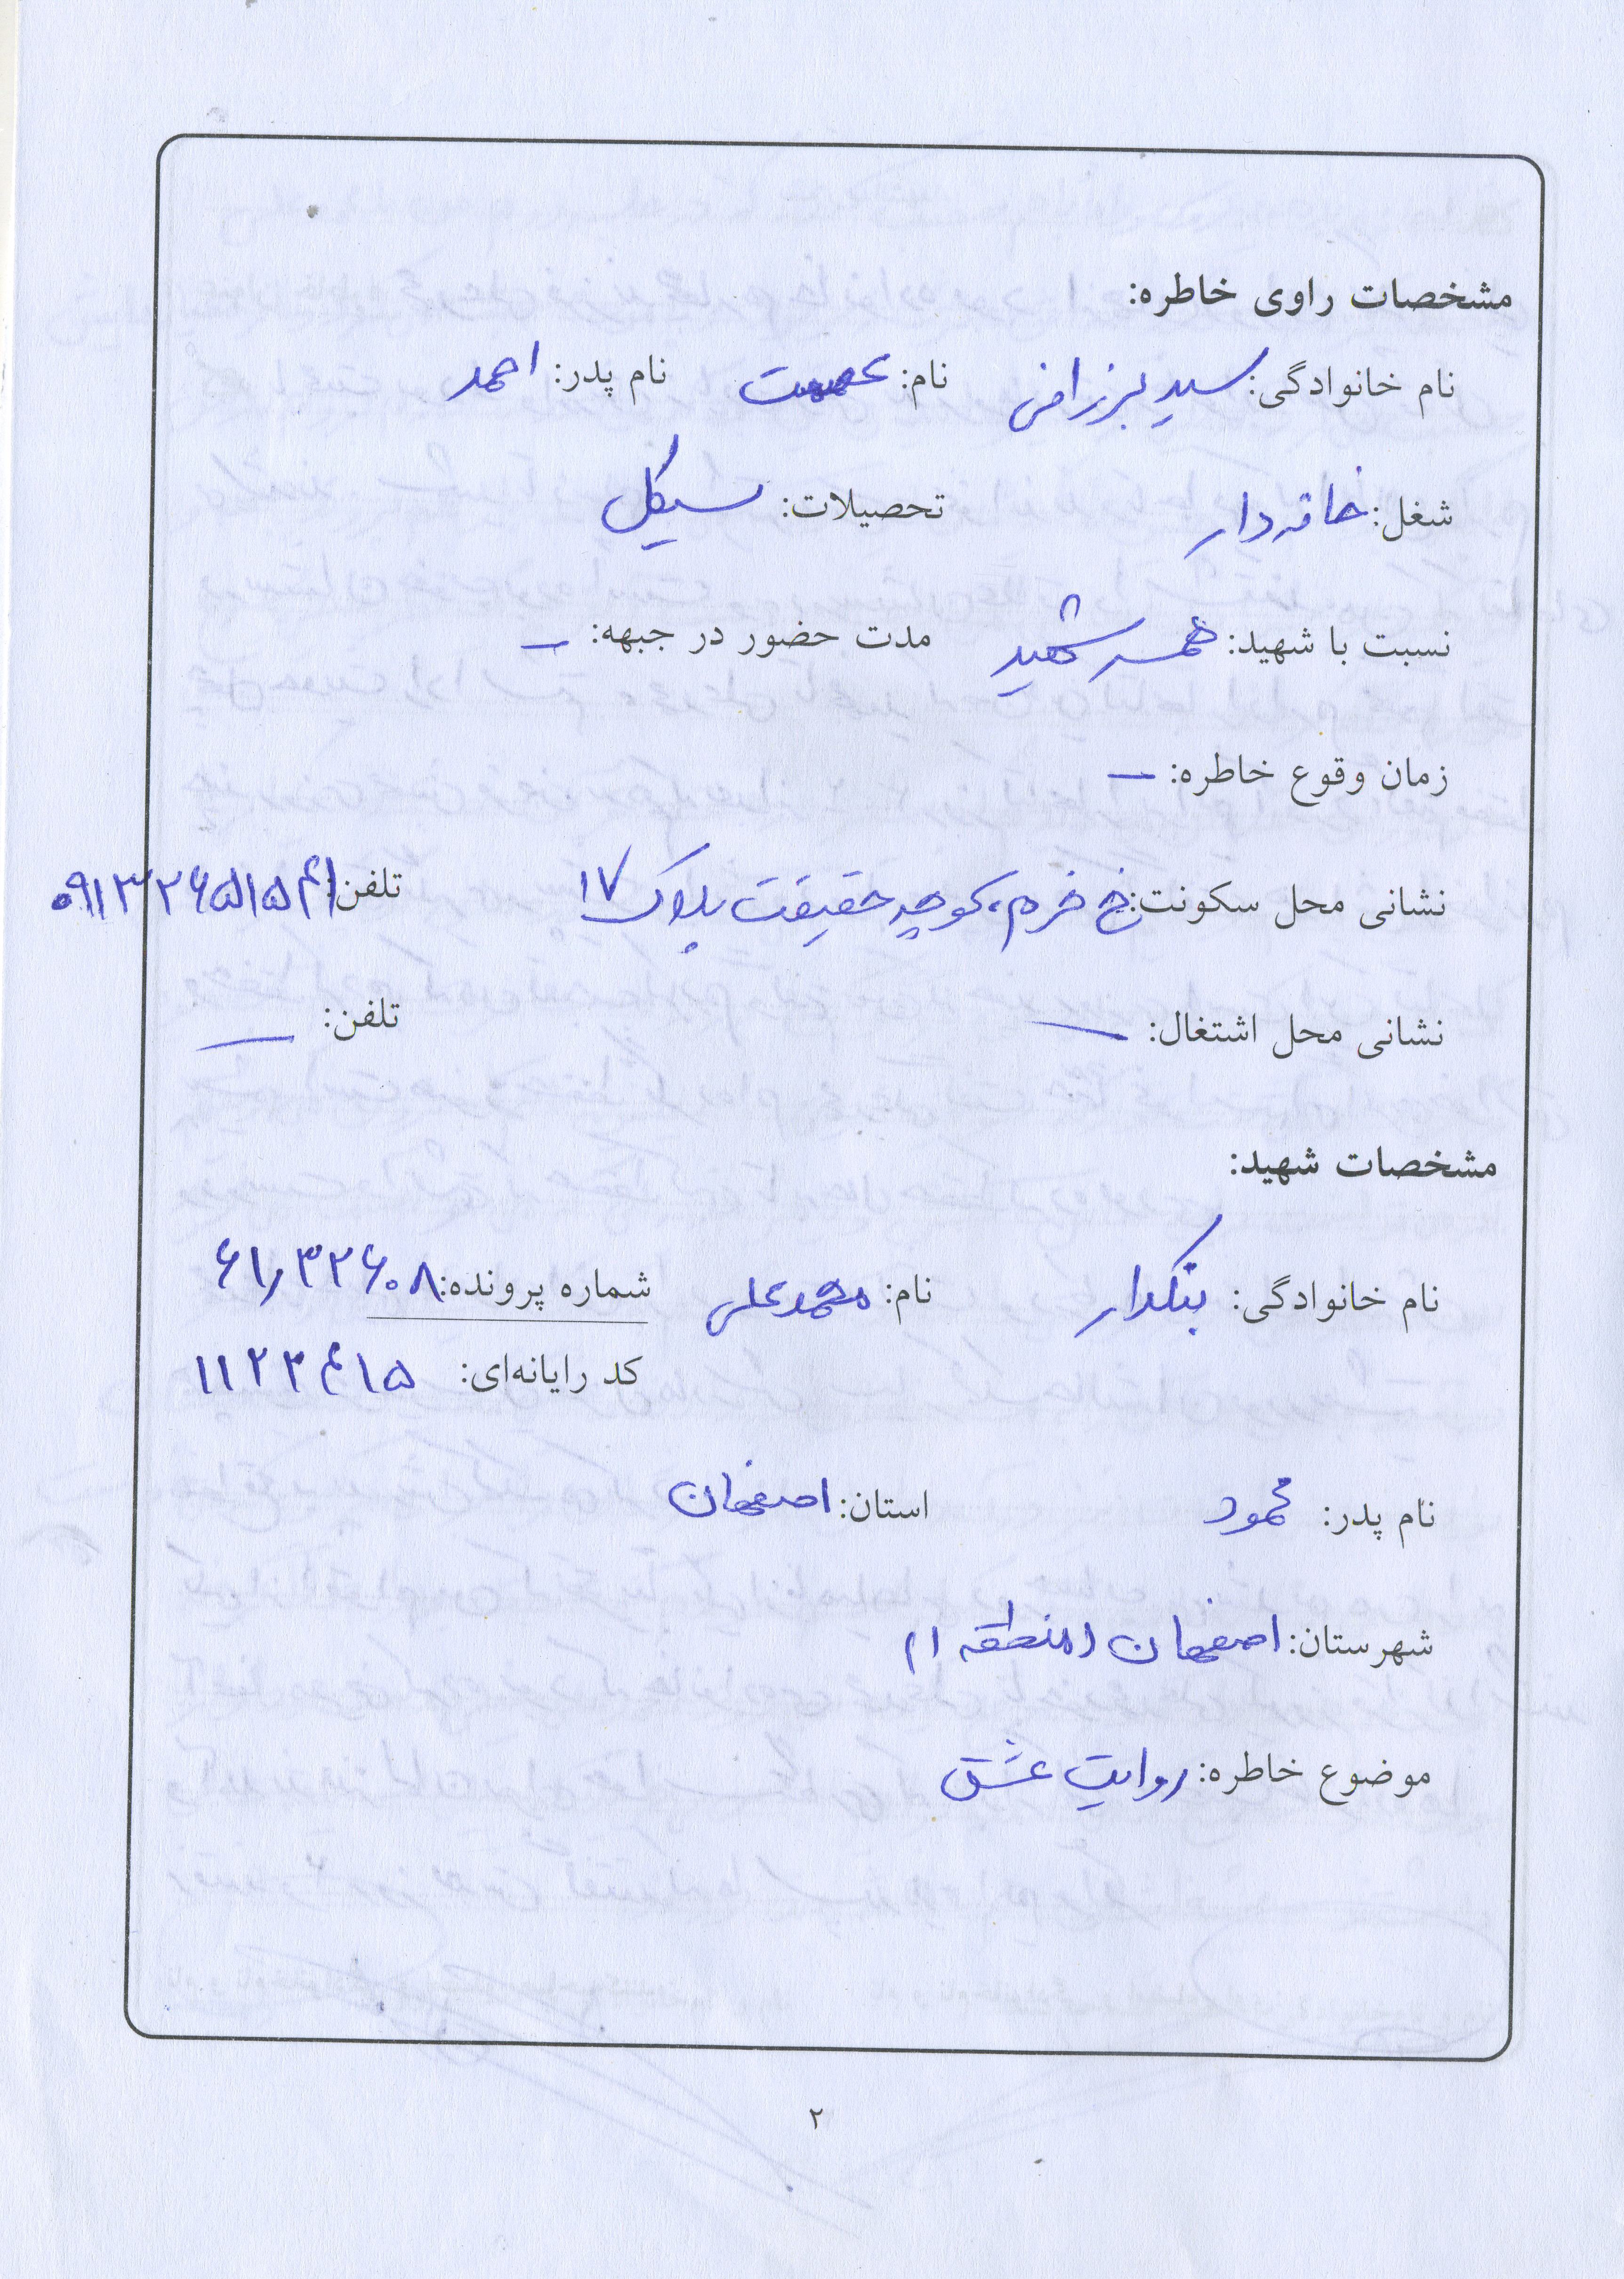 مشخصات راوی خاطره:
نام خانوادگی: سید برزانی نام: عصمت نام پدر: احمد
شغل: خانه‌دار تحصیلات: سیکل
نسبت با شهید: همسر شهید مدت حضور در جبهه: ـ
زمان وقوع خاطره: ـ
نشانی محل سکونت: خ خرم، کوچه حقیقت پلاک ۱۷ تلفن:
نشانی محل اشتغال: ـ تلفن: ـ
مشخصات شهید:
نام خانوادگی: بنکدار نام: محمدعلی شماره پرونده:
کد رایانه‌ای: ۱۱۲۳۴۱۵
نام پدر: محمود استان: اصفهان
شهرستان: اصفهان (منطقه ۱)
موضوع خاطره: روایت عشق
۲